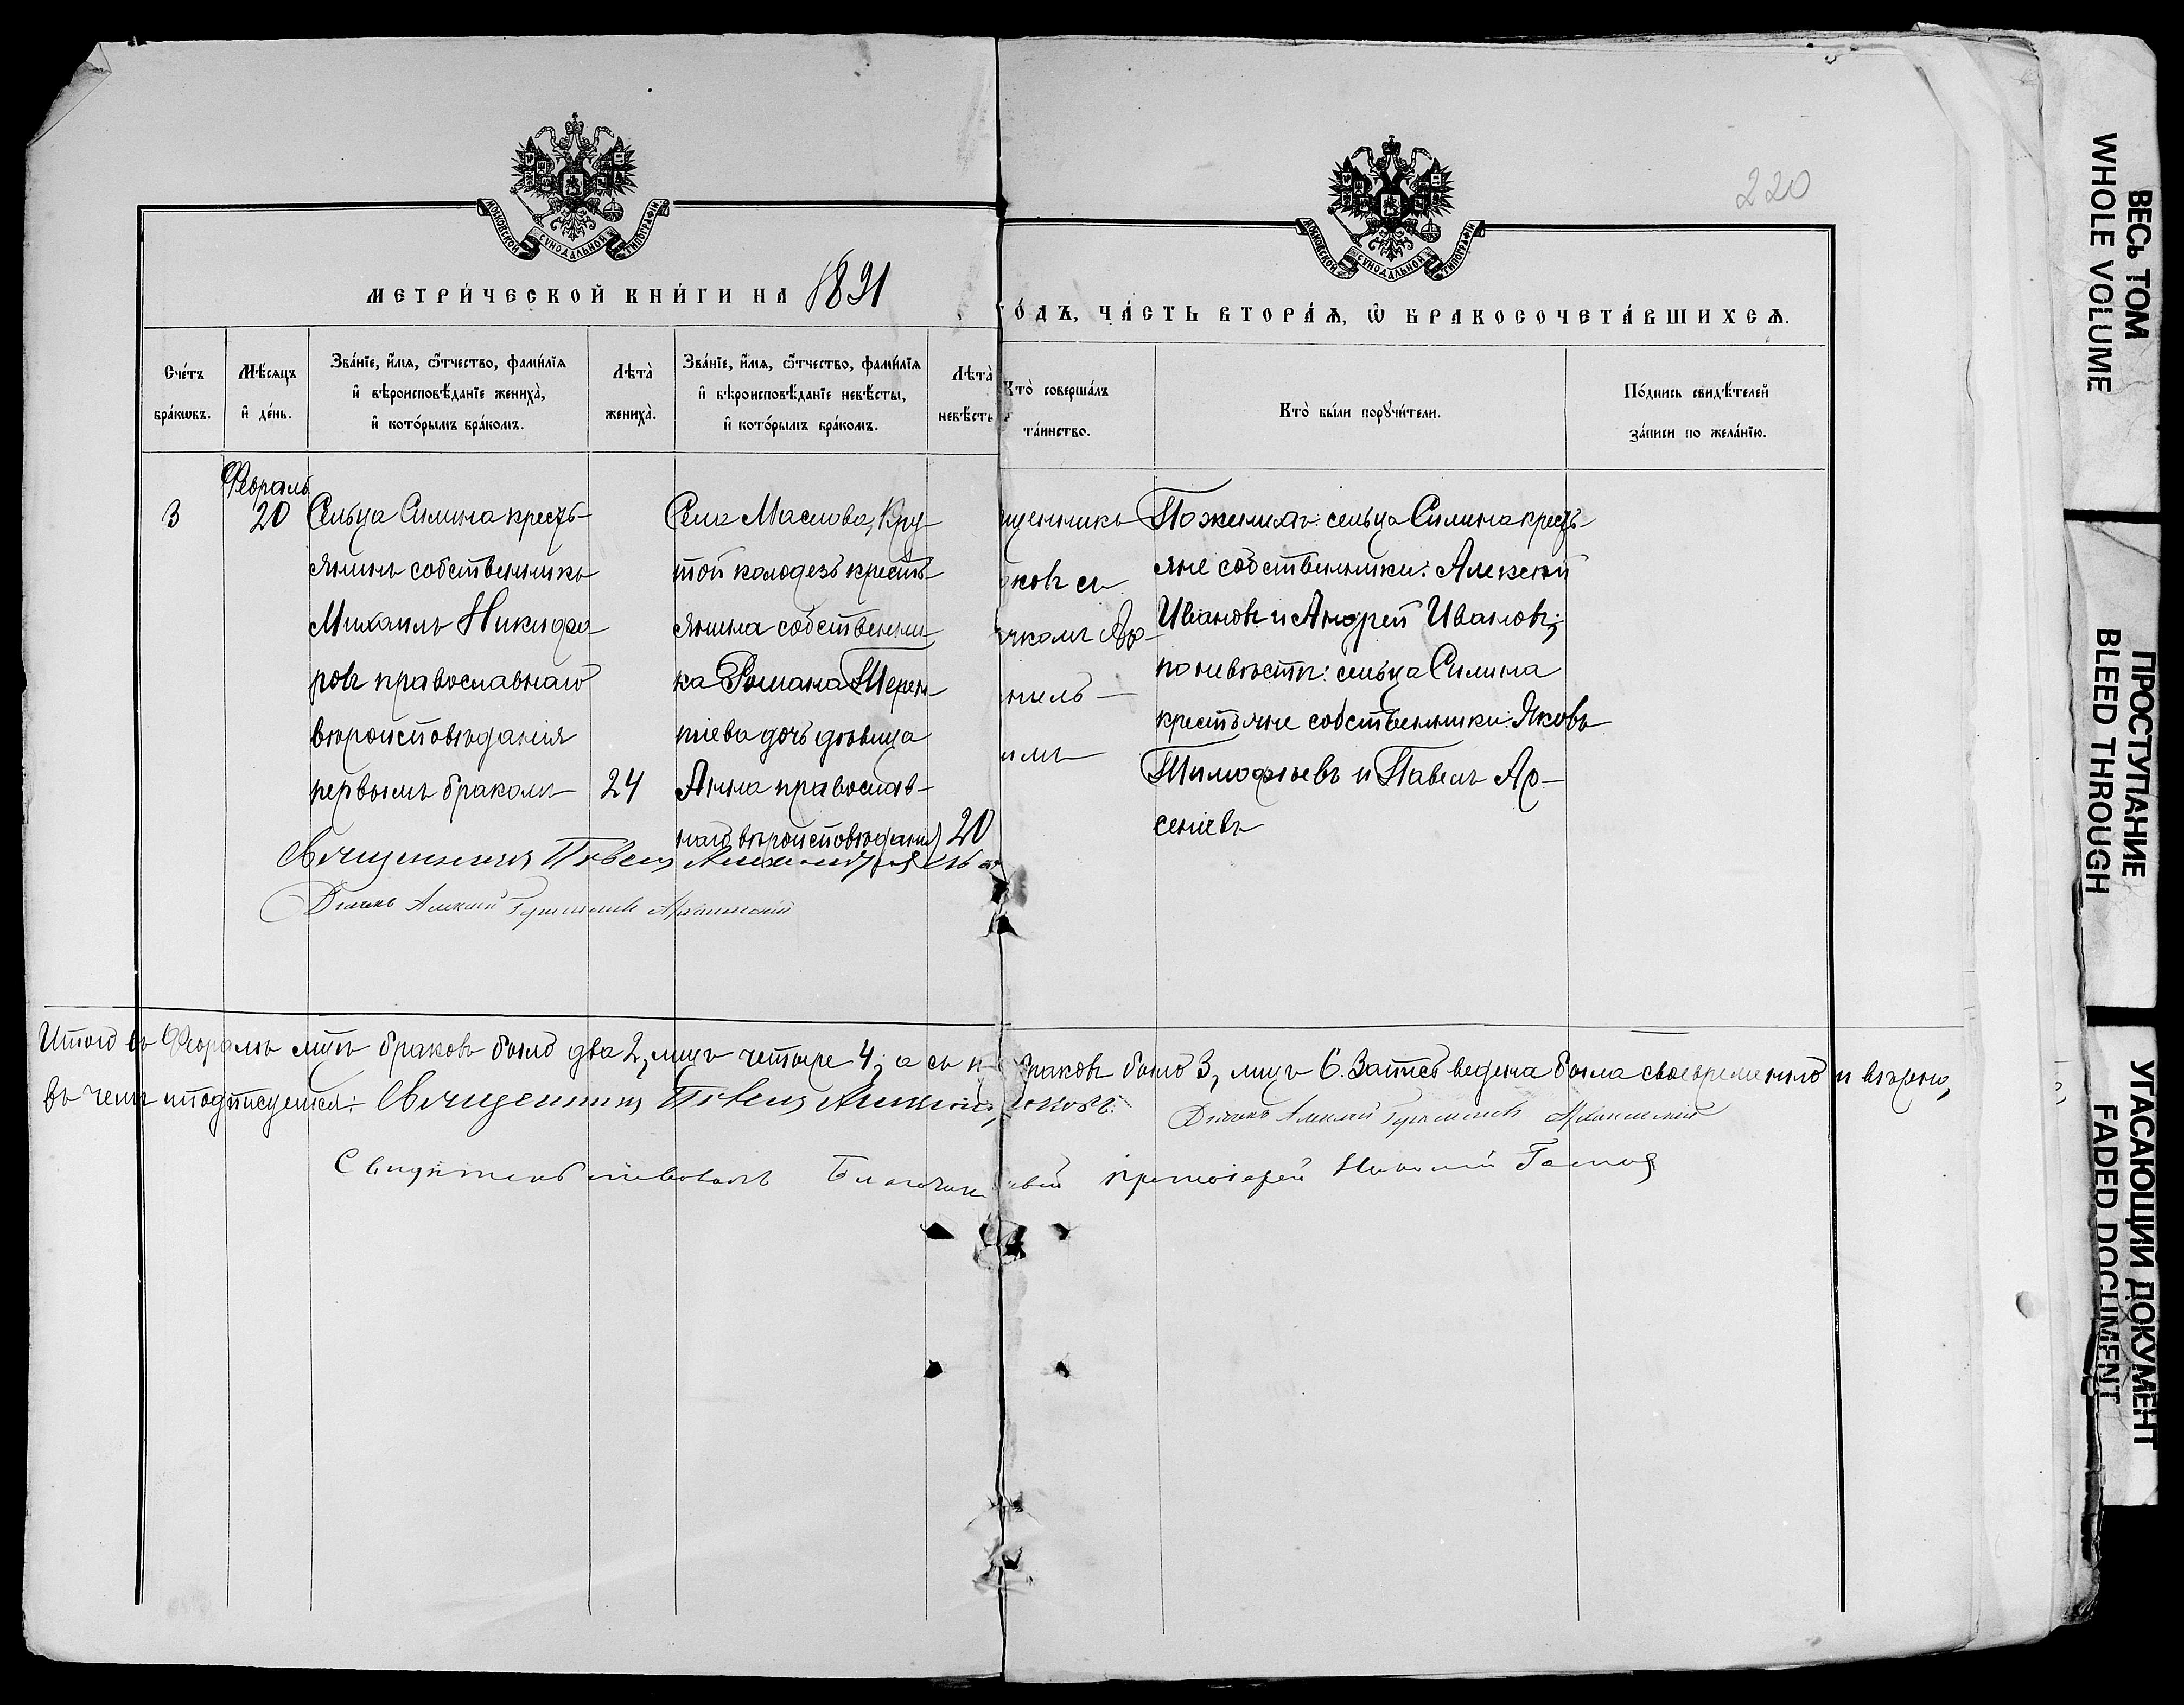 220
МОСКОВСКОЙ СѴНОДАЛЬНОЙ ТИПОГРАФІИ
МОСКОВСКОЙ СѴНОДАЛЬНОЙ ТИПОГРАФІИ
МЕТРИ́ЧЕСКОЙ КНИ́ГИ НА 1891
ГО́ДЪ, ЧА́СТЬ ВТОРА́Ѧ, Ѡ҆ БРАКОСОЧЕТА́ВШИХСѦ.
Сче́тъ бра́кѡвъ.
Мѣ́сѧцъ и҆ де́нь.
Зва́нїе, и҆́мѧ, ѻ҆́тчество, фами́лїѧ
и҆ вѣроисповѣ́данїе жениха̀,
и҆ кото́рымъ бра́комъ.
Лѣта̀ жениха̀.
Зва́нїе, и҆́мѧ, ѻ҆́тчество, фами́лїѧ
и҆ вѣроисповѣ́данїе невѣ́сты,
и҆ кото́рымъ бра́комъ.
Лѣта̀ невѣ́сты
Кто̀ соверша́лъ
та́инство.
Кто̀ бы́ли порꙋчи́тели.
По́дпись свидѣ́телей
за́писи по жела́нїю.
3
Февраль
20
Сельца Силина кресть-
янинъ собственникъ
Михаилъ Никифо-
ровъ православнаго
вѣроисповѣданія
первымъ бракомъ
24
Села Маслова, Кру-
той колодезь кресть-
янина собственни-
ка Романа Терен-
тіева дочь дѣвица
Анна православ-
наго вѣроисповѣданія
20
щенникъ
ковъ съ
чкомъ Ар-
нель-
имъ
По женихѣ: сельца Силина кресть-
яне собственники: Алексѣй
Ивановъ и Андрей Ивановъ;
по невѣстѣ: сельца Силина
крестьяне собственники Яковъ
Тимофѣевъ и Павелъ Ар-
сеніевъ
Священникъ Павелъ
Дьячекъ Алексѣй Архангельскій
Итого въ Февралѣ мцѣ браковъ было два 2, лицъ четыре 4, а съ н раковъ было 3, лицъ 6. Запись ведена была своевременно и вѣрно,
въ чемъ и подписуемся: Священникъ Павелъ ковъ. Дьячекъ Алексѣй Архангельскій
Свидѣтельствовалъ Благочин протоіерей Николай
ВЕСЬ ТОМ
WHOLE VOLUME
ПРОСТУПАНИЕ
BLEED THROUGH
УГАСАЮЩИЙ ДОКУМЕНТ
FADED DOCUMENT